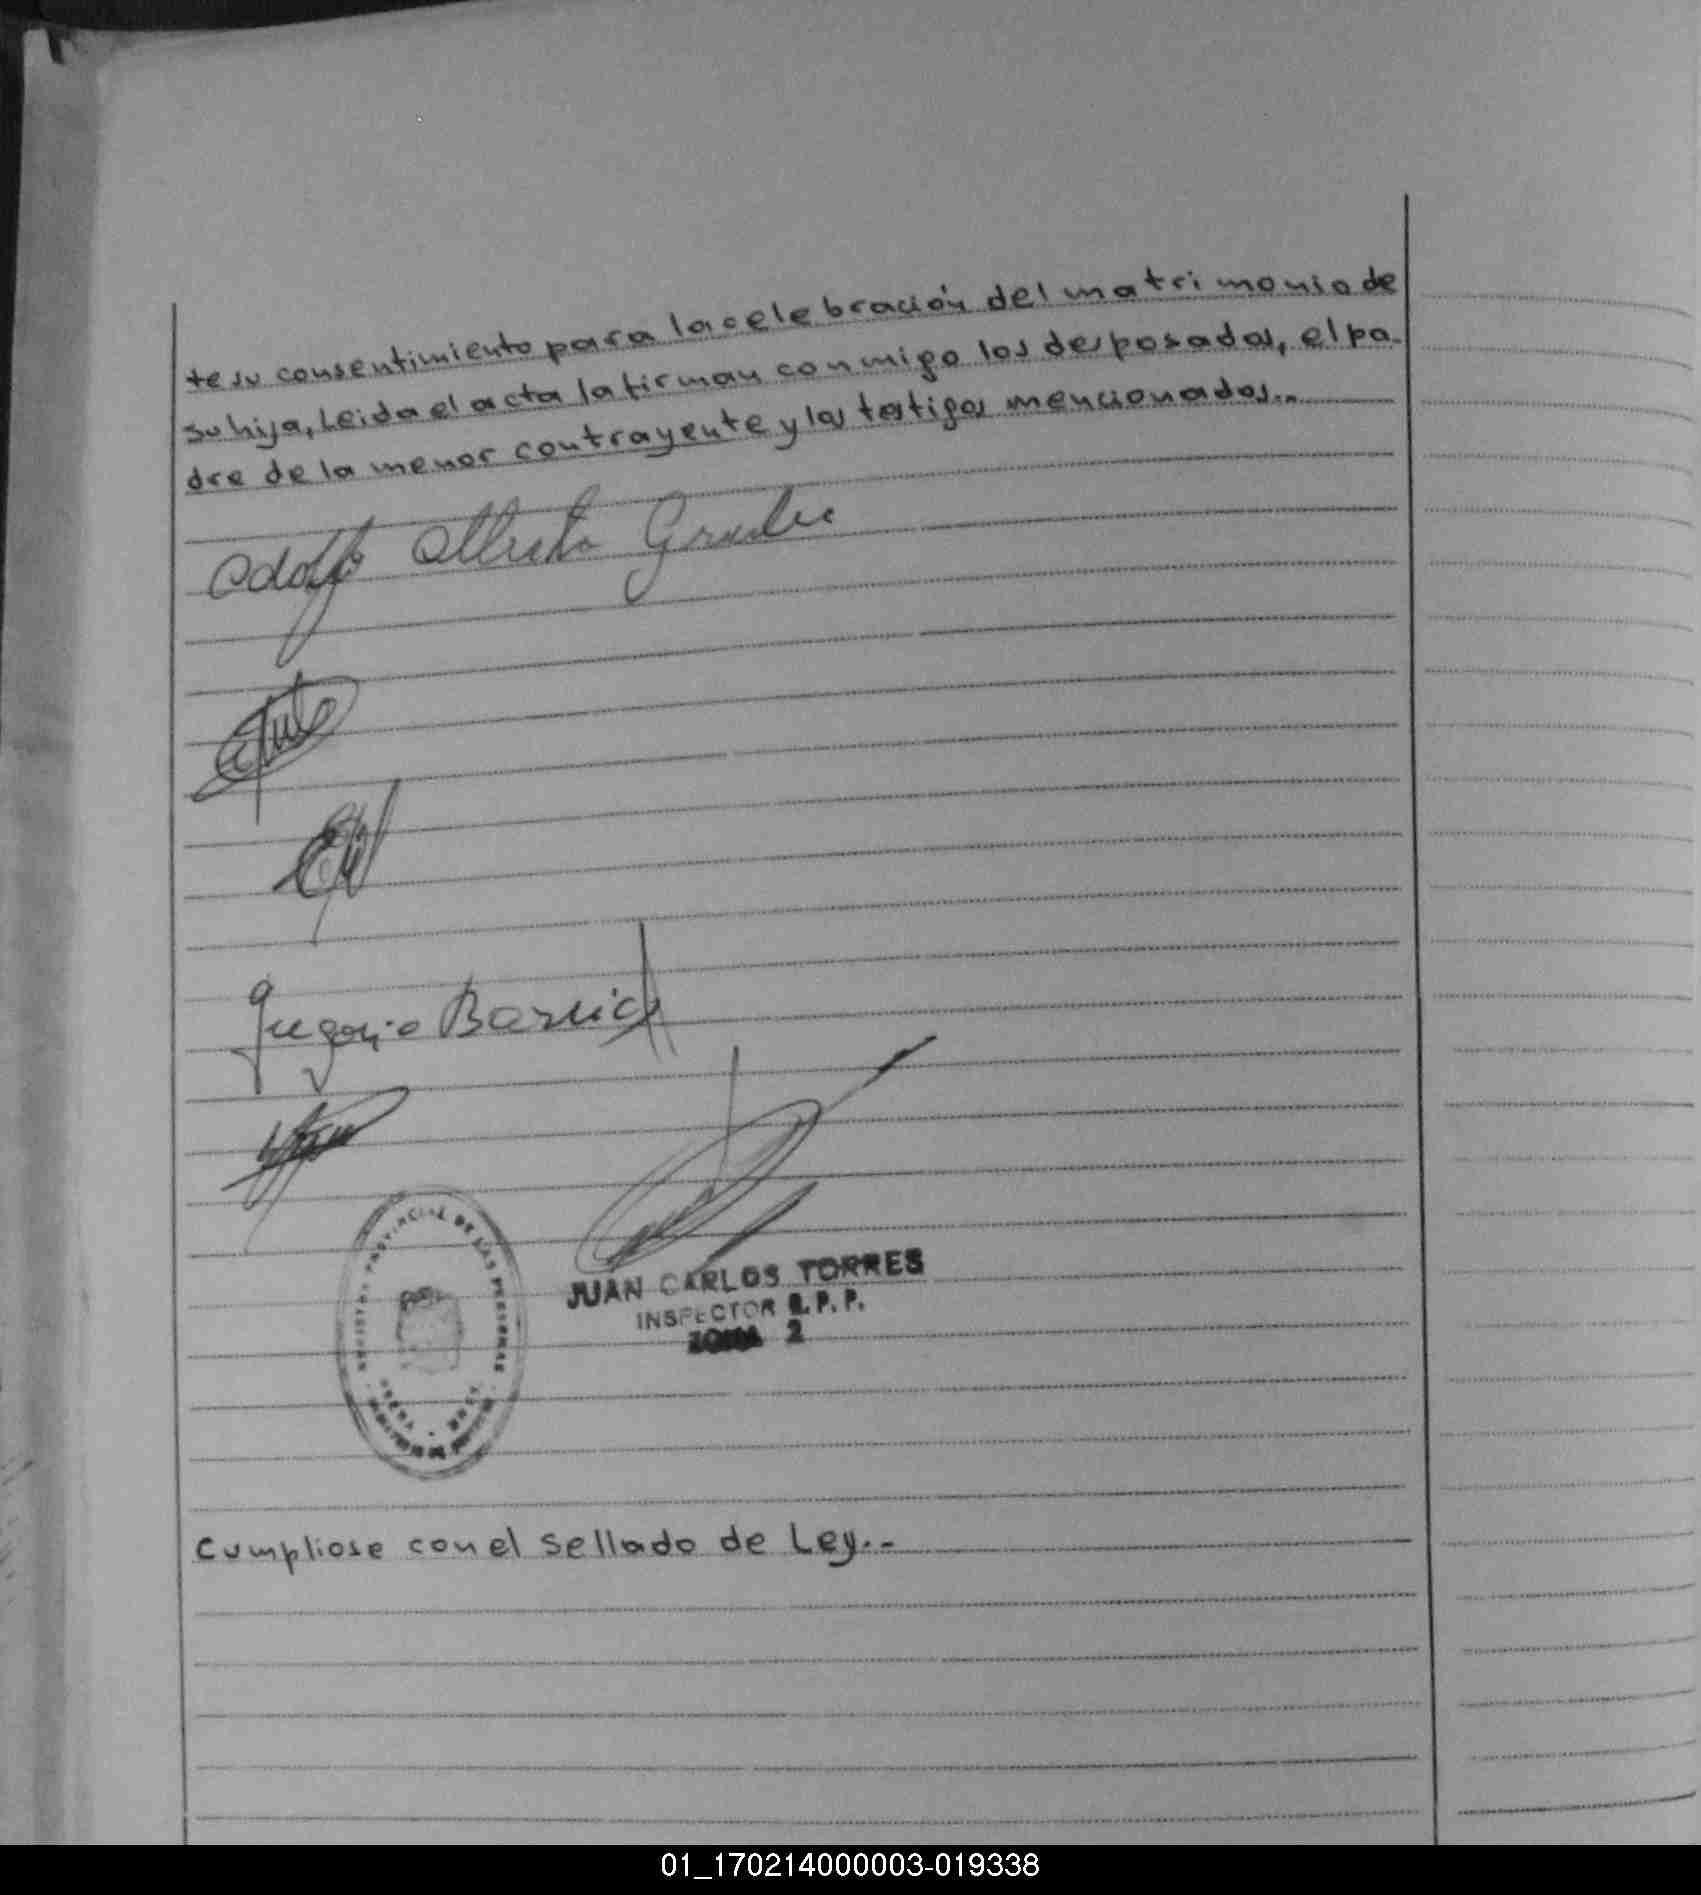 te su consentimiento para la celebración del matrimonio de
su hija, Leida el acta la firman conmigo los desposados, el pa-
dre de la menor contrayente y los testigos mencionados..
Adolfo Alberto
Gregorio
REGISTRO PROVINCIAL DE LAS PERSONAS
JUAN CARLOS TORRES
INSPECTOR R.P.P.
ZONA 2
Cumpliose con el sellado de Ley..
01_170214000003-019338